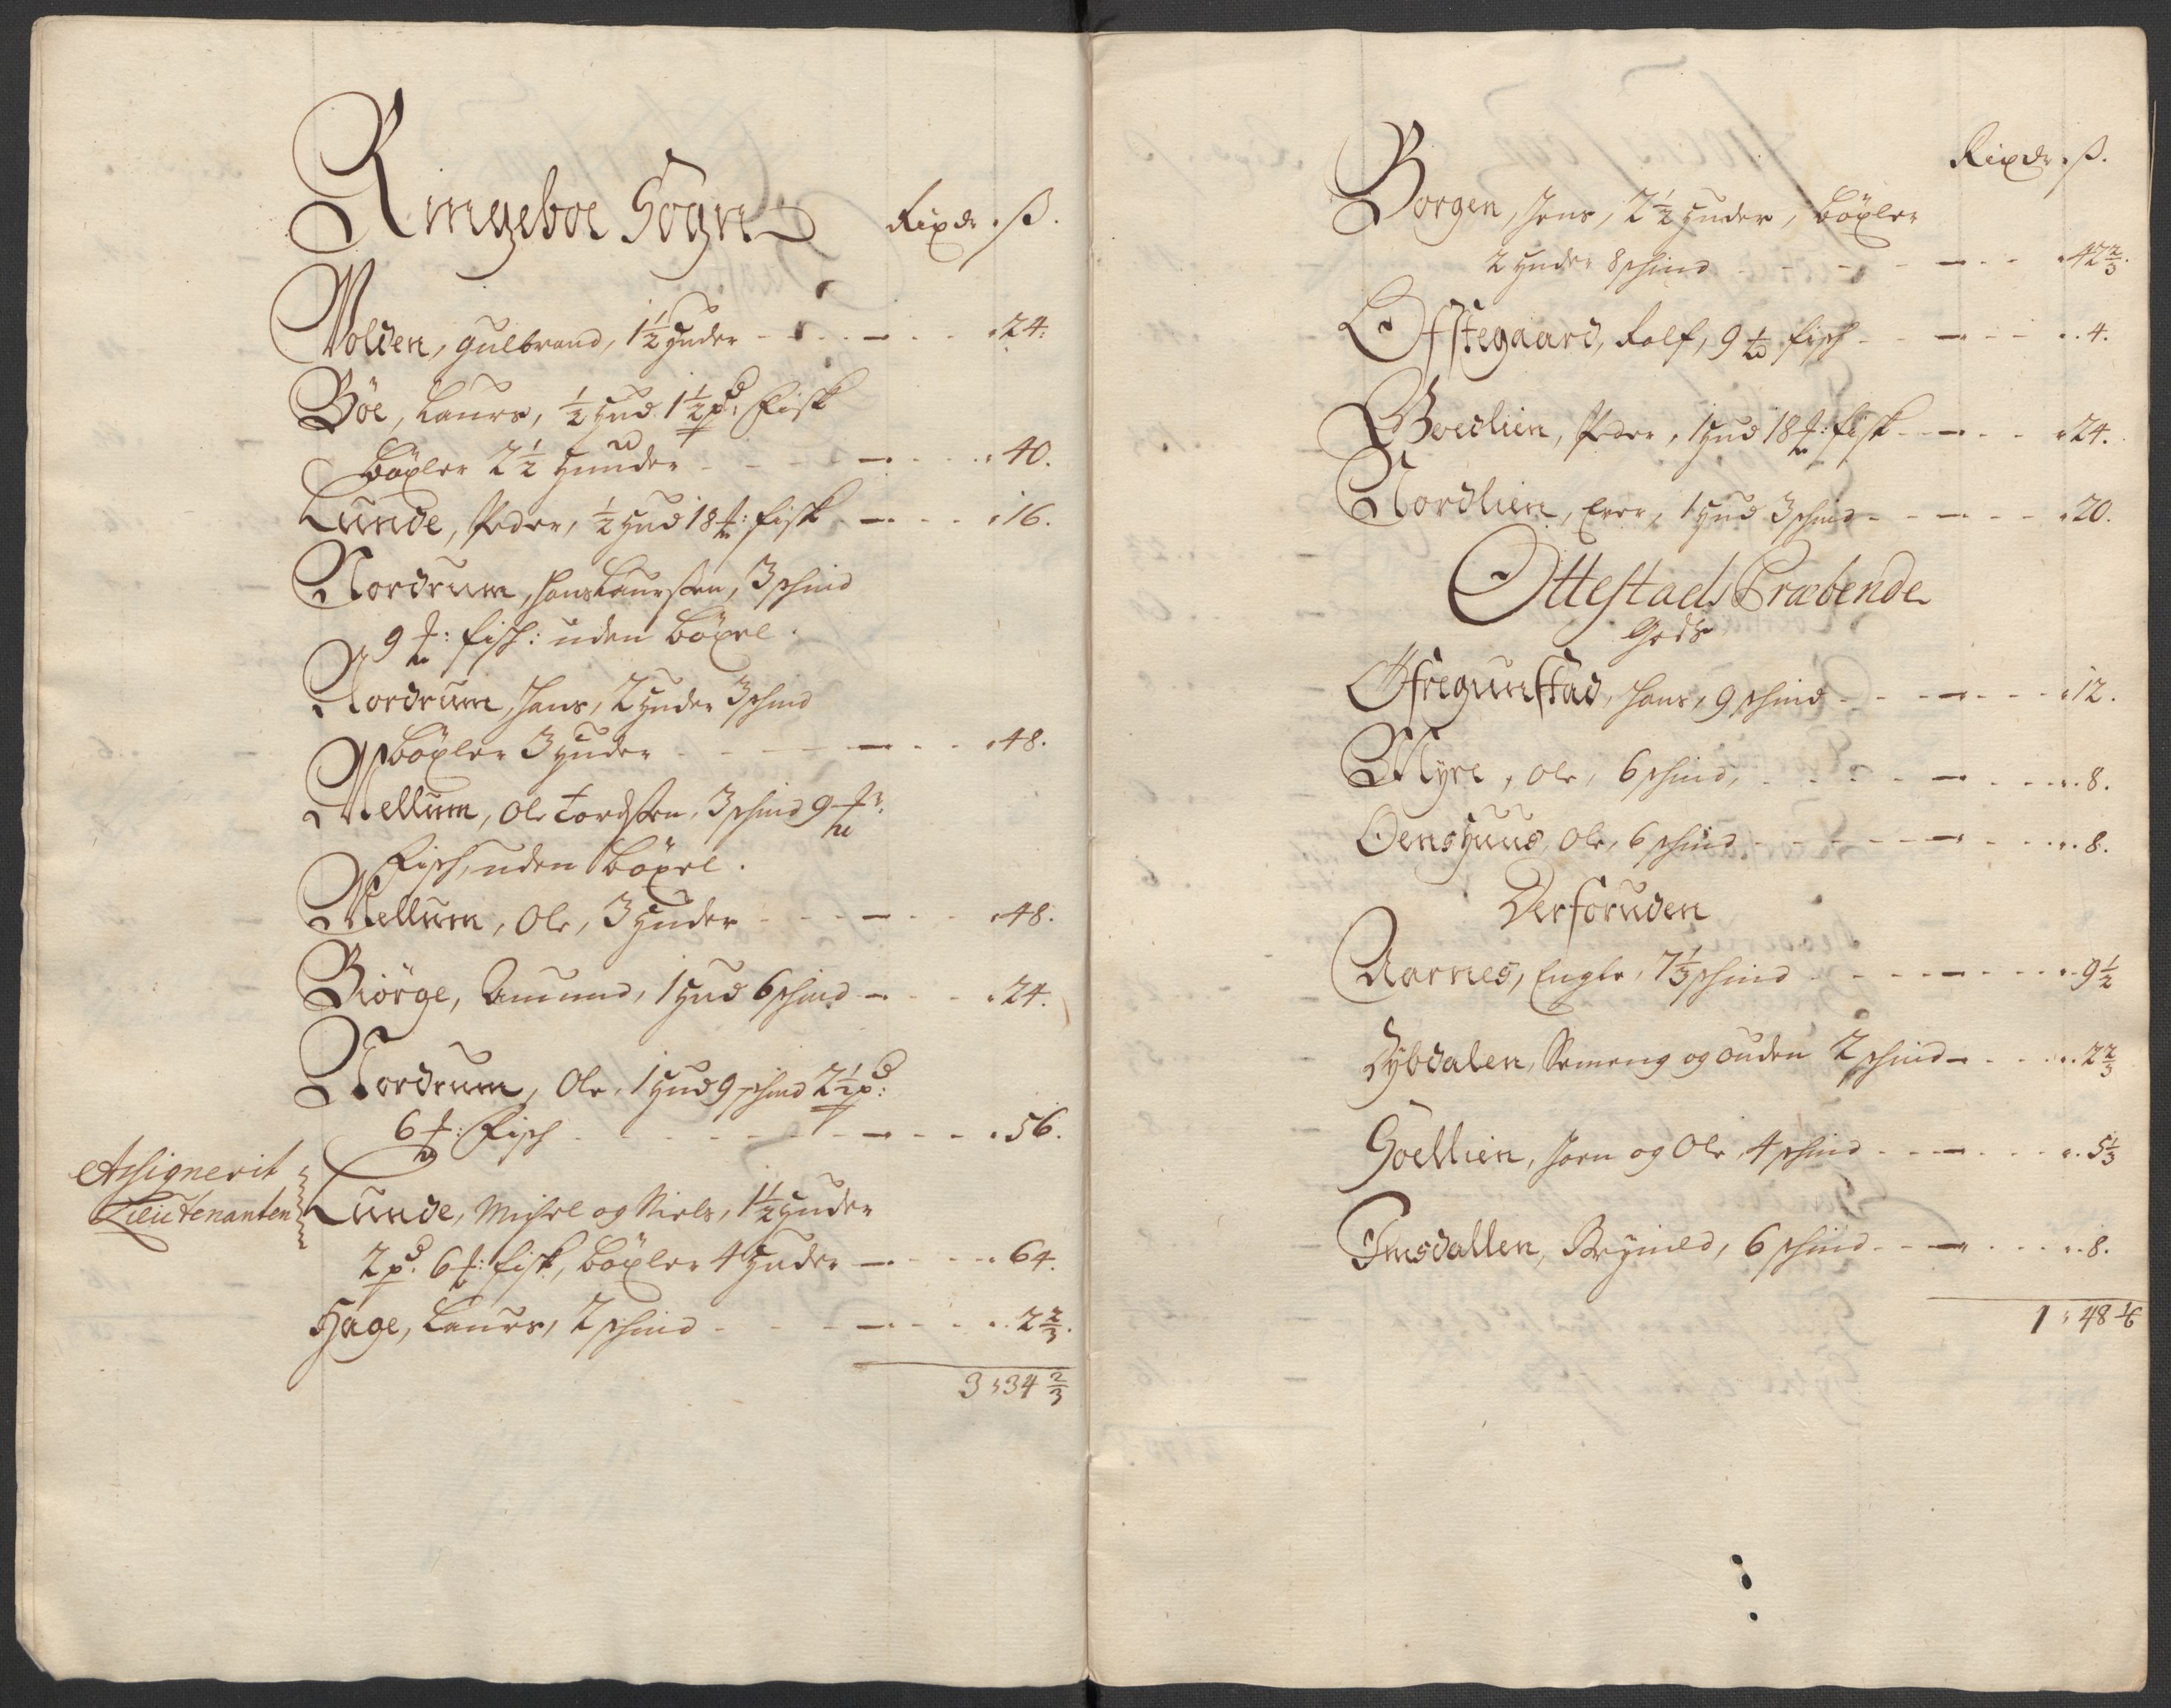 Ringeboe Sogn
Rixdr . ß.
Wolden, Gulbrand, 1½ Huder - - - - - - 24.
Böe, Laurs, ½ Hud 1½ pd: Fisk
Böxler 2½ Huuder - - - - - 40.
Lunde, Peder, ½ Hud 18 ℔: fisk - - - 16.
Nordrum, Hans Laursen, 3 skind
9 ℔: fisk: uden böxel.
Nordrum, Hans, 2 Huder 3 skind
Böxler 3 Huder - - - - - - 48.
Mellum, Ole Tordsen, 3 skind 9 ℔:
Fisk, uden böxel.
Mellum, Ole, 3 Huder - - - - - 48.
Biörge, Amund, 1 Hud 6 skind - - - 24.
Nordrum, Ole, 1 Hud 9 skind 2½ pd:
6 ℔: Fisk - - - - - - - - 56.
Assignerit
Lieutenanten
Lunde, Michel og Niels, 1½ Huder
2 pd. 6 ℔: fisk, böxler 4 Huder - - - 64.
Hage, Laurs, 2 skind - - - - - - 2⅔.
3 : 34⅔
Rixdr . ß.
Borgen, Jens, 2½ Huder, böxler
2 Huder 8 skind - - - - - - 42⅔.
Ofstegaard, Rolf, 9 ℔ fisk - - - - - 4.
Boedlien, Peder, 1 Hud 18 ℔: fisk - - - - 24.
Nordlien, Erer, 1 Hud 3 skind - - - - - 20.
Ottestads Præbende
Gods
Ofregunstad, Hans, 9 skind - - - - - 12.
Myre, Ole, 6 skind, - - - - - - 8.
Oenshuus, Ole, 6 skind - - - - - - 8.
Derforuden
Aarnes, Engle, 7⅓ skind - - - - - - 9½
Dybdalen, Semeng og Ouden 2 skind - - - 2⅔
Goellien, Joen og Ole, 4 skind - - - - - 5⅓
Imsdallen, Bryneld, 6 skind - - - - - 8.
1 : 48⅙